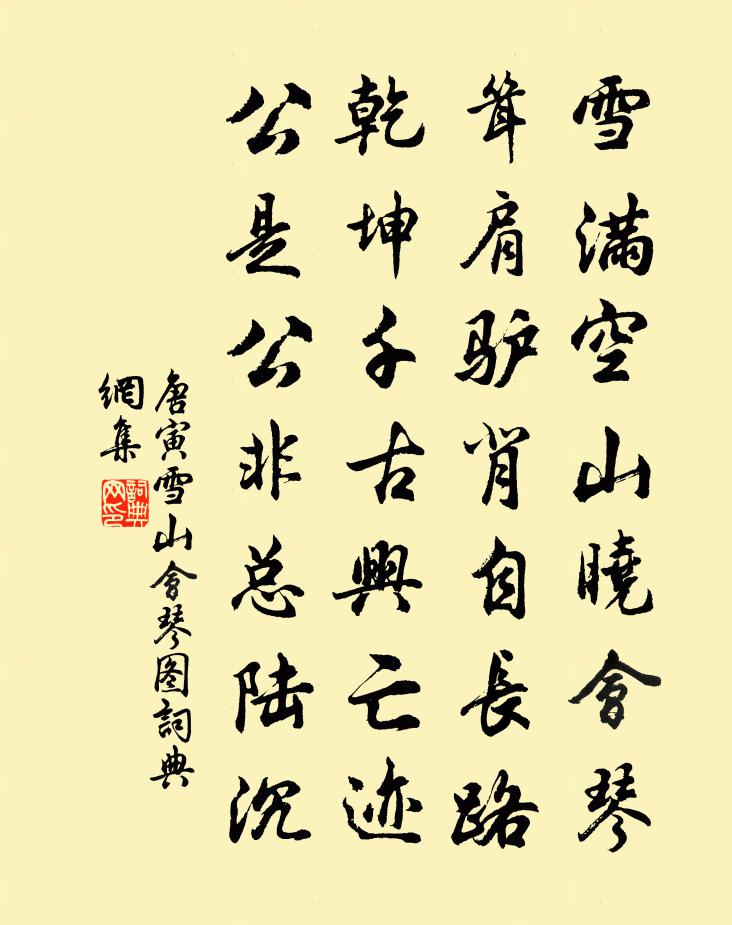 雪满空山曉會琴
耸肩驴背自長路
乾坤千古興亡迹
公是公非总陆沉
唐寅雪山會琴图詞典
網集
詞典
网印